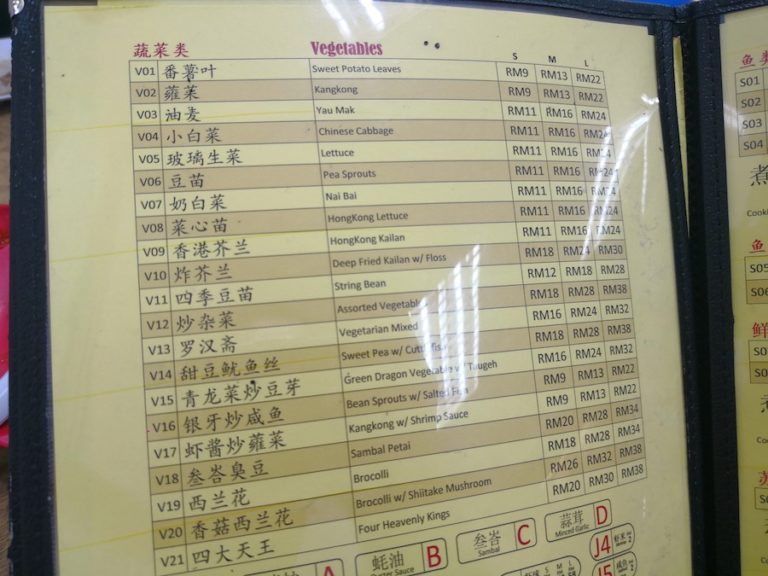 蔬菜类 Vegetables S M L
V01 番薯叶 Sweet Potato Leaves RM9 RM13 RM22
V02 蕹菜 Kangkong RM9 RM13 RM22
V03 油麦 Yau Mak RM11 RM16 RM24
V04 小白菜 Chinese Cabbage RM11 RM16 RM24
V05 玻璃生菜 Lettuce RM11 RM16 RM24
V06 豆苗 Pea Sprouts RM11 RM16 RM24
V07 奶白菜 Nai Bai RM11 RM16 RM24
V08 菜心苗 HongKong Lettuce RM11 RM16 RM24
V09 香港芥兰 HongKong Kailan RM11 RM16 RM24
V10 炸芥兰 Deep Fried Kailan w/ Floss RM18 RM24 RM30
V11 四季豆苗 String Bean RM12 RM18 RM28
V12 炒杂菜 Assorted Vegetable RM18 RM28 RM38
V13 罗汉斋 Vegetarian Mixed RM16 RM24 RM32
V14 甜豆鱿鱼丝 Sweet Pea w/ Cuttlefish RM18 RM28 RM38
V15 青龙菜炒豆芽 Green Dragon Vegetable w/ Taugeh RM16 RM24 RM32
V16 银牙炒咸鱼 Bean Sprouts w/ Salted Fish RM9 RM13 RM22
V17 虾酱炒蕹菜 Kangkong w/ Shrimp Sauce RM9 RM13 RM22
V18 叁峇臭豆 Sambal Petai RM20 RM28 RM34
V19 西兰花 Brocolli RM18 RM28 RM34
V20 香菇西兰花 Brocolli w/ Shiitake Mushroom RM26 RM32 RM38
V21 四大天王 Four Heavenly Kings RM20 RM30 RM38
A
蚝油 B
Sauce
叁峇 C
Sambal
蒜茸 D
Minced Garlic
J4
J5
鱼类
S01
S02
S03
S04
煮
鱼
S05
鲜
煮